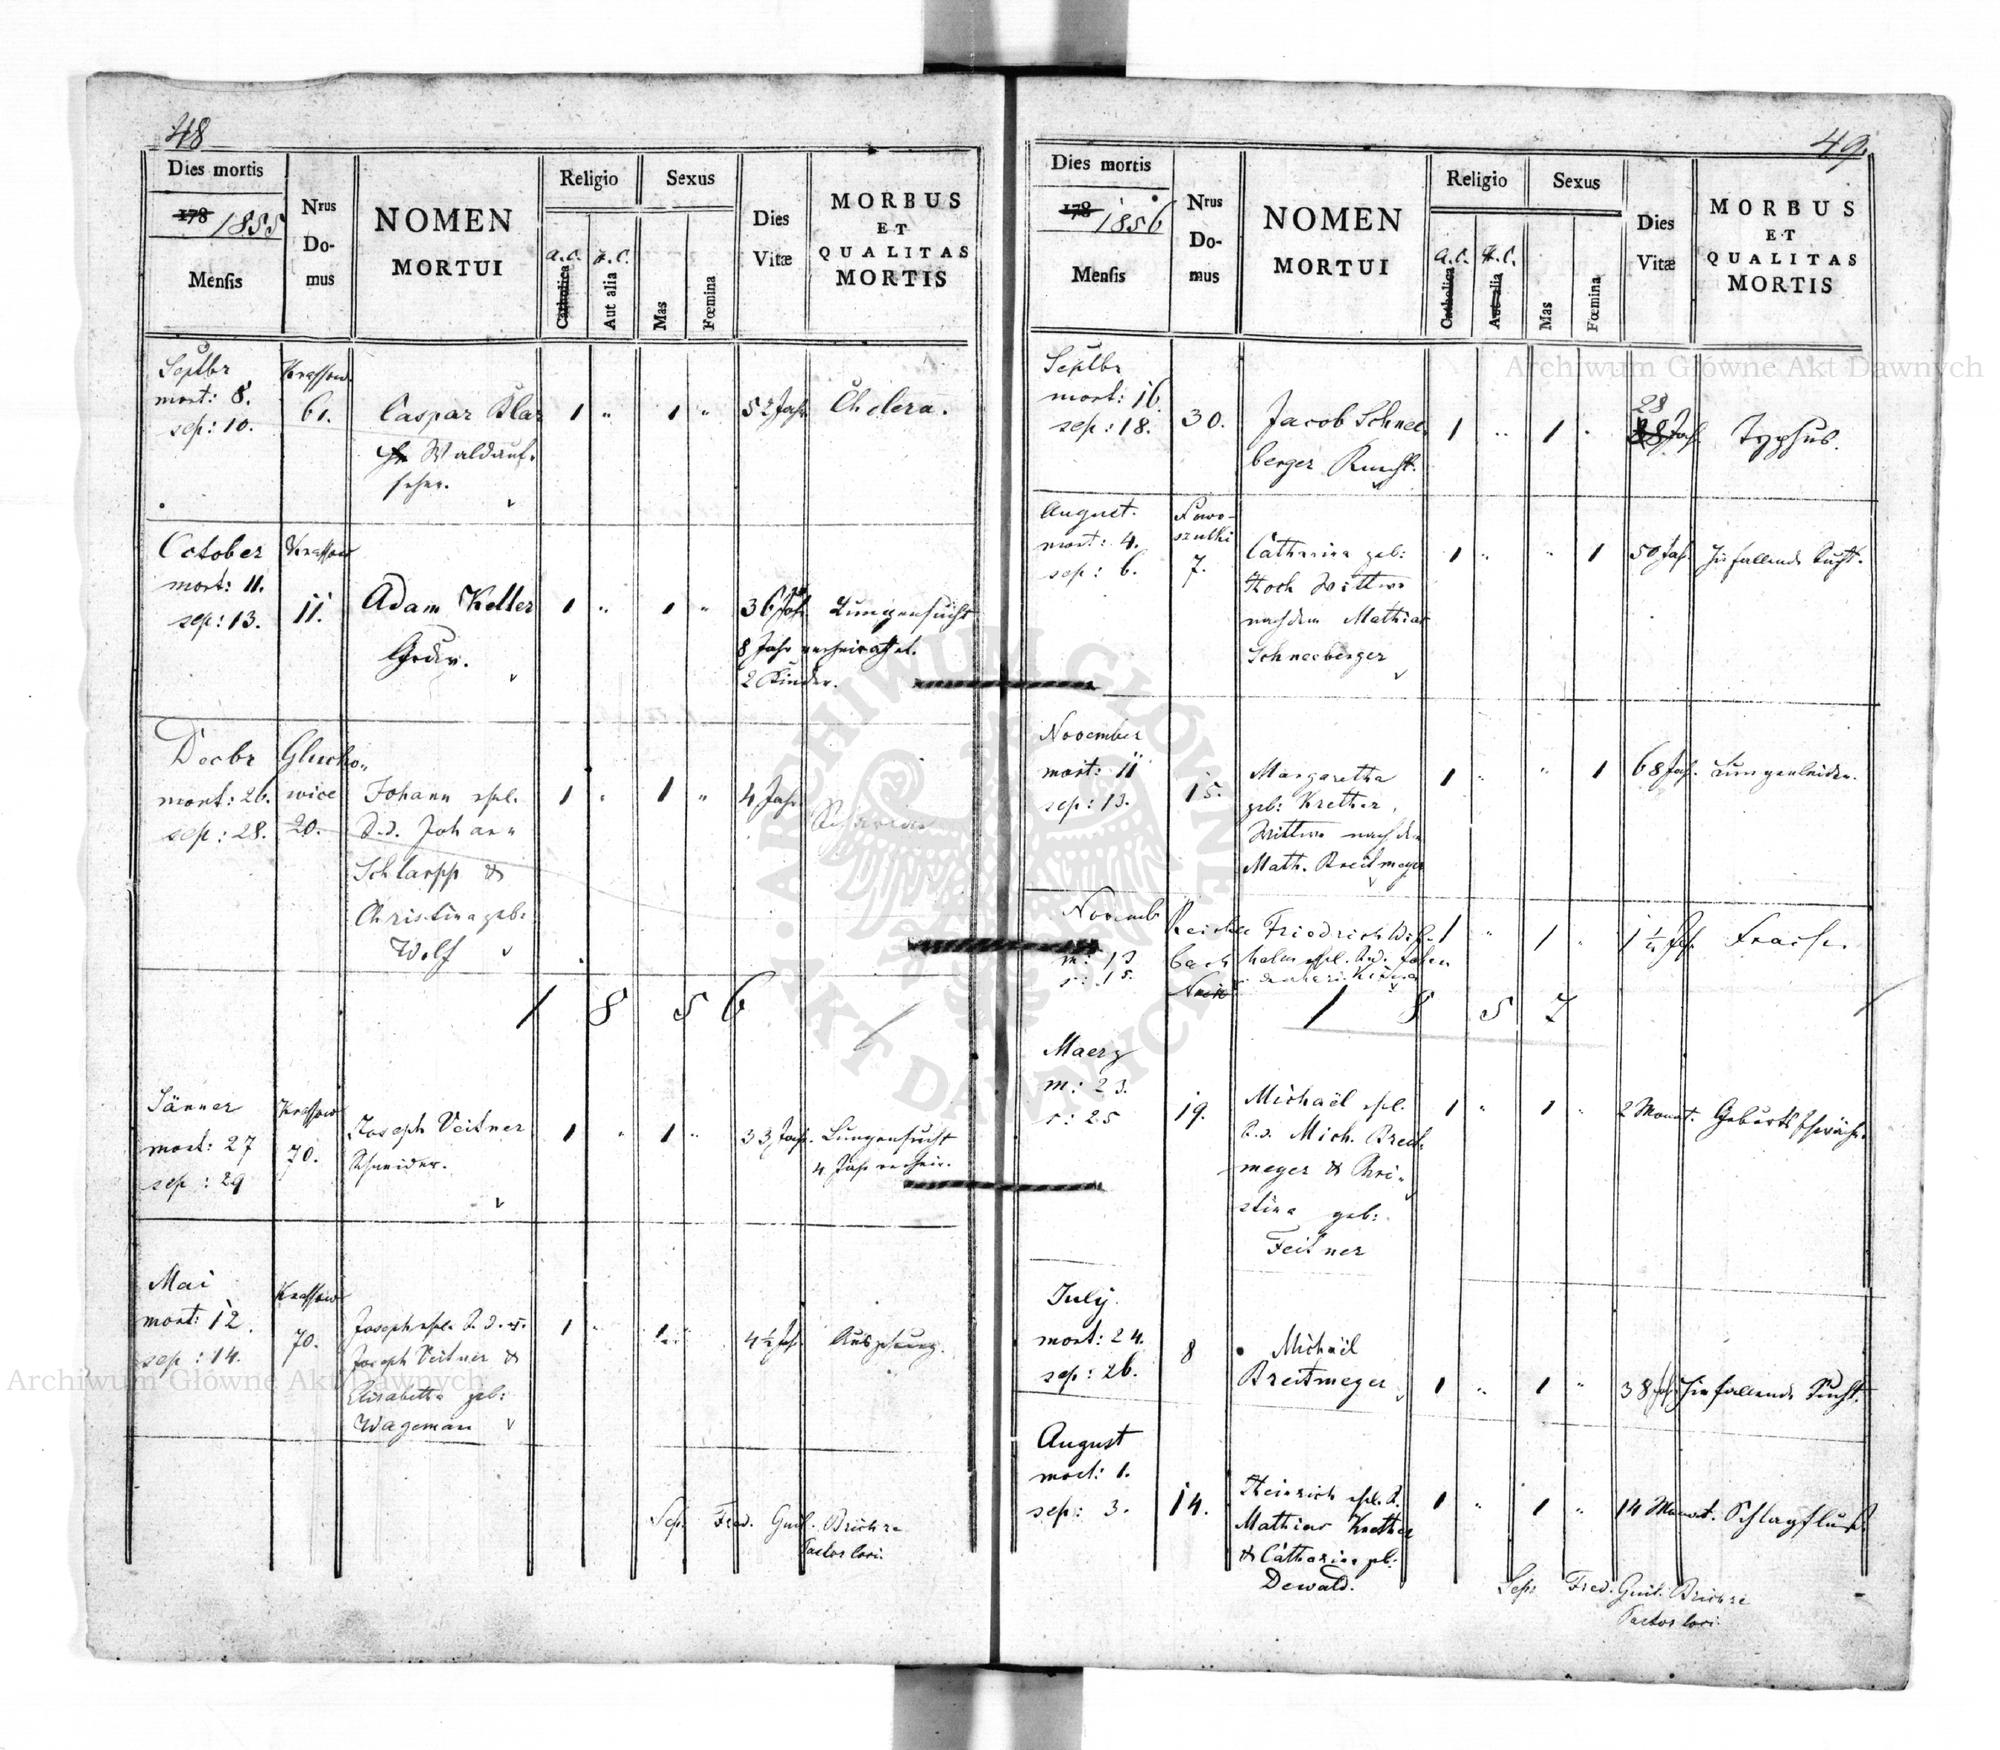 48
Dies mortis
178 1855
Mensis
Nrus
Do-
mus
NOMEN
MORTUI
Religio
a.C.
Catholica
H.C.
Aut alia
Sexus
Mas
Fœmina
Dies
Vitæ
MORBUS
ET
QUALITAS
MORTIS
Septbr Krassow
mort: 8. 61. Caspar Blar 1 " 1 " 52 Jahr Cholera.
sep: 10. Waldauf-
seher.
October Krassow
mort: 11. 11. Adam Keller 1 " 1 " 36 Jahr Lungensucht
sep: 13. 8 Jahr verheirathet.
2 Kinder.
Decbr Glucho-
mort: 26. wice Johann ehl. 1 " 1 " 4 Jahr
sep: 28. 20. S. d. Johann
Schlarpp &
Christina geb:
Wolf
1 8 5 6
Jänner Krassow
mort: 27 70. Joseph Veitner 1 " 1 " 33 Jahr. Lungensucht
sep: 29 Schneider. 4 Jahr verheir.
Mai Krassow
mort: 12. 70. Joseph ehl. S. d. 1 " 1 4½ Jah.
sep: 14. Joseph Veitner &
Elisabetha geb:
Wageman
Sep. Fred. Guil.
Pastor loci.
49.
Dies mortis
178 1856
Mensis
Nrus
Do-
mus
NOMEN
MORTUI
Religio
a.C.
Catholica
H.C.
Aut alia
Sexus
Mas
Fœmina
Dies
Vitæ
MORBUS
ET
QUALITAS
MORTIS
Septbr
mort: 16. 30. Jacob Schnee- 1 " 1 " 28 Jah. Typhus.
sep: 18. berger Knecht.
August.
mort: 4. 7. Catharina geb: 1 " " 1 50 Jah. Hinfallende Sucht.
sep: 6. Koch Wittwe
nach dem Mathias
Schneeberger
November
mort: 11 15. Margaretha 1 " " 1 68 Jah. Lungenleiden.
sep: 13. geb: Krether,
Wittwe nach dem
Math. Breitmeyer
Novemb Reichen Friedrich Wil- 1 " 1 " 1½ Jah. Fraise.
m: 13 bach helm ehl. S. d. Johann
s: 15
1 8 5 7
Maerz
m: 23. 19. Michaël ehl. 1 " 1 " 2 Monat. Geburtsschwäche.
s: 25 S. d. Mich. Breit-
meyer & Chri-
stina geb:
Feitner
July.
mort: 24. 8 Michaël
sep: 26. Breitmeyer 1 " 1 " 38 Jah. Hinfallende Sucht.
August
mort: 1. 14. Heinrich ehl. S. 1 " 1 " 14 Monat. Schlagfluß.
sep: 3. Mathias Krether
& Catharina geb:
Dewald.
Sep: Fred. Guil.
Pastor loci.
Archiwum Główne Akt Dawnych
Archiwum Główne Akt Dawnych
ARCHIWUM GŁÓWNE AKT DAWNYCH